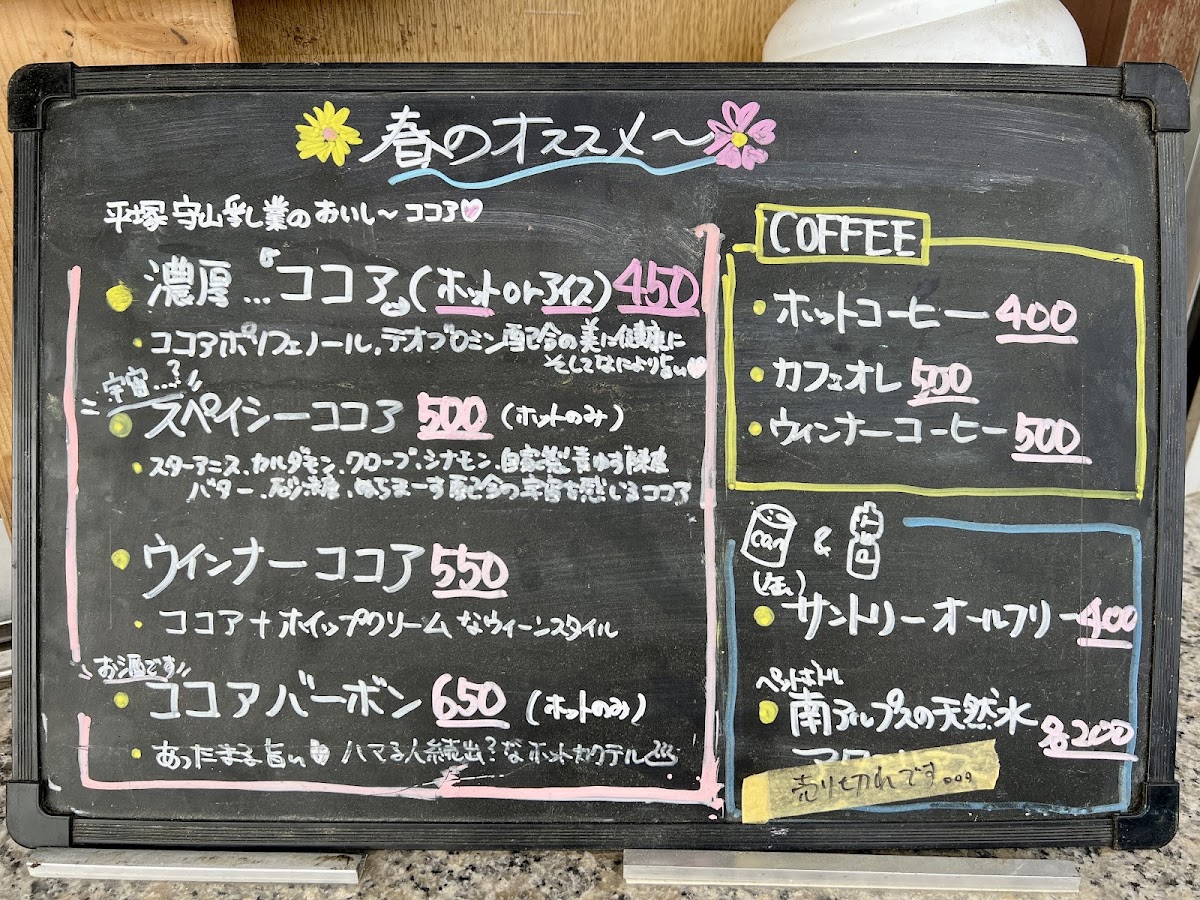 春のオススメ〜
平塚 守山乳し業のおいし〜ココア
濃厚…ココア(ホットorアイス) 450
・ココアポリフェノール、テオブロミン配合の美に健康に
そしてなにより旨い
宇宙…?
スペイシーココア 500 (ホットのみ)
・スターアニス、カルダモン、クローブ、シナモン、自家製青ゆず陳皮
バター、砂糖、ぬちまーす配合の宇宙を感じるココア
ウインナーココア 550
・ココア+ホイップクリームなウィーンスタイル
お酒です
ココアバーボン 650 (ホットのみ)
・あったまる旨い ハマる人続出?なホットカクテル
COFFEE
・ホットコーヒー 400
・カフェオレ 500
・ウィンナーコーヒー 500
Can &
(缶)
サントリーオールフリー 400
ペットボトル
南アルプスの天然水 各200
売り切れです...